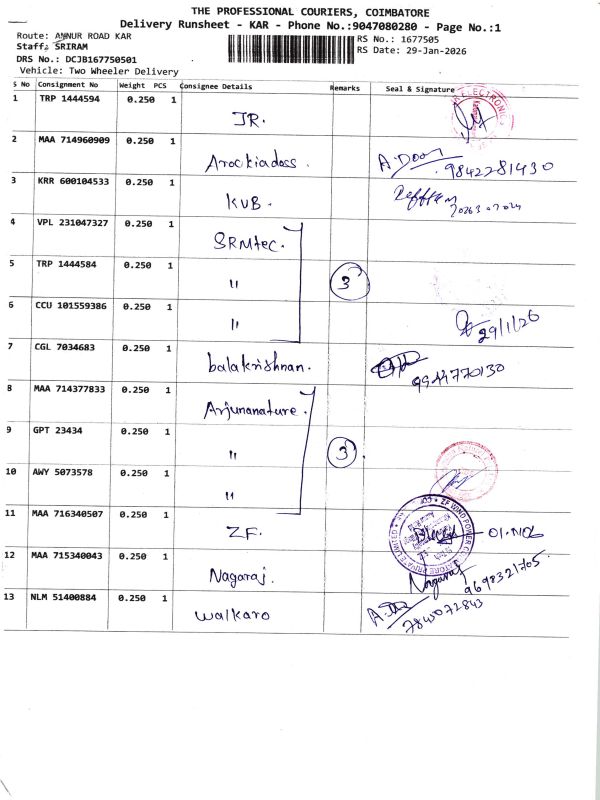 THE PROFESSIONAL COURIERS, COIMBATORE
Delivery Runsheet - KAR - Phone No.:9047080280 - Page No.:1
Route: ANNUR ROAD KAR
RS No.: 1677505
Staff: SRIRAM
RS Date: 29-Jan-2026
DRS No.: DCJB167750501
Vehicle: Two Wheeler Delivery
S No Consignment No Weight PCS Consignee Details Remarks Seal & Signature
1 TRP 1444594 0.250 1 JR.
2 MAA 714960909 0.250 1 Arockiadoss. A.Doss 9842281430
3 KRR 600104533 0.250 1 KVB.
4 VPL 231047327 0.250 1 SRMtec.
5 TRP 1444584 0.250 1 " 3
6 CCU 101559386 0.250 1 " 29/1/26
7 CGL 7034683 0.250 1 balakrishnan. 9944770130
8 MAA 714377833 0.250 1 Arjunanature.
9 GPT 23434 0.250 1 " 3
10 AWY 5073578 0.250 1 "
11 MAA 716340507 0.250 1 ZF.
ZF WIND POWER COIMBATORE PRIVATE LIMITED
12 MAA 715340043 0.250 1 Nagaraj. Nagaraj 9698321705
13 NLM 51400884 0.250 1 Walkaro 7845072843